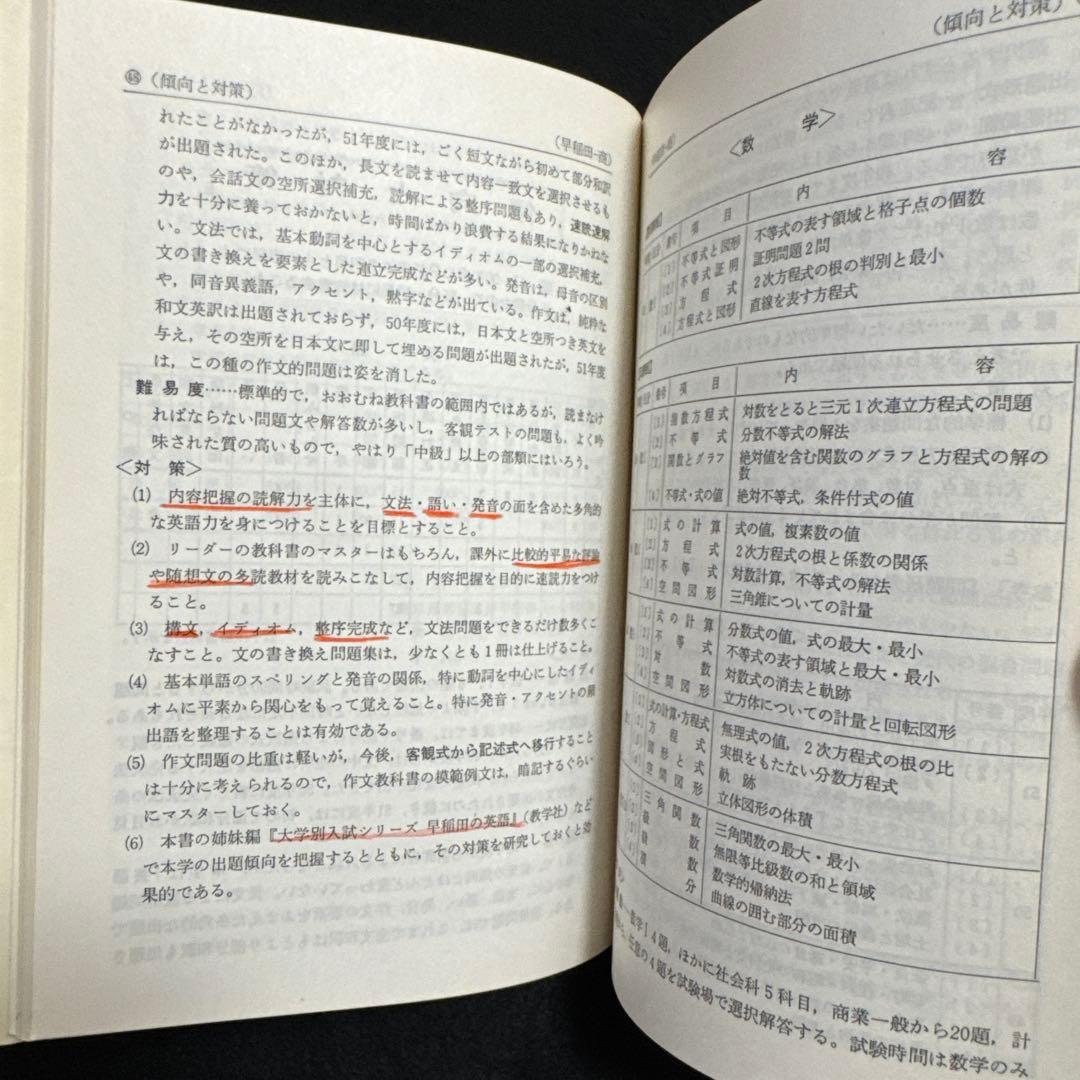 ㊽（傾向と対策）
（早稲田-夜）
れたことがなかったが，51年度には，ごく短文ながら初めて部分和訳
が出題された。このほか，長文を読ませて内容一致文を選択させるも
のや，会話文の空所選択補充，読解による整序問題もあり，速読速解
力を十分に養っておかないと，時間ばかり浪費する結果になりかねな
い。文法では，基本動詞を中心とするイディオムの一部の選択補充，
文の書き換えを要素とした連立完成などが多い。発音は，母音の区別
や，同音異義語，アクセント，黙字などが出ている。作文は，純粋な
和文英訳は出題されておらず，50年度には，日本文と空所つき英文を
与え，その空所を日本文に即して埋める問題が出題されたが，51年度
は，この種の作文的問題は姿を消した。
難易度……標準的で，おおむね教科書の範囲内ではあるが，読まなけ
ればならない問題文や解答数が多いし，客観テストの問題も，よく吟
味された質の高いもので，やはり「中級」以上の部類にはいろう。
＜対　策＞
(1)　内容把握の読解力を主体に，文法・語い・発音の面を含めた多角的
な英語力を身につけることを目標とすること。
(2)　リーダーの教科書のマスターはもちろん，課外に比較的平易な評論
や随想文の多読教材を読みこなして，内容把握を目的に速読力をつけ
ること。
(3)　構文，イディオム，整序完成など，文法問題をできるだけ数多くこ
なすこと。文の書き換え問題集は，少なくとも１冊は仕上げること。
(4)　基本単語のスペリングと発音の関係，特に動詞を中心にしたイディ
オムに平素から関心をもって覚えること。特に発音・アクセントの頻
出語を整理することは有効である。
(5)　作文問題の比重は軽いが，今後，客観式から記述式へ移行すること
は十分に考えられるので，作文教科書の模範例文は，暗記するぐらい
にマスターしておく。
(6)　本書の姉妹編『大学別入試シリーズ 早稲田の英語』（教学社）など
で本学の出題傾向を把握するとともに，その対策を研究しておくと効
果的である。
（傾向と対策）
＜数　学＞
項　目　内　容
〔1〕不等式と図形　不等式の表す領域と格子点の個数
〔2〕不等式証明　証明問題２問
〔3〕方程式　２次方程式の根の判別と最小
〔4〕方程式と図形　直線を表す方程式
番号　項　目　内　容
〔1〕指数方程式　対数をとると三元１次連立方程式の問題
〔2〕不等式　分数不等式の解法
〔3〕関数とグラフ　絶対値を含む関数のグラフと方程式の解の
数
〔4〕不等式・式の値　絶対不等式，条件付式の値
〔1〕式の計算　式の値，複素数の値
〔2〕方程式　２次方程式の根と係数の関係
〔3〕不等式　対数計算，不等式の解法
〔4〕空間図形　三角錐についての計量
〔1〕式の計算　分数式の値，式の最大・最小
〔2〕不等式　不等式の表す領域と最大・最小
〔3〕対数　対数式の消去と軌跡
〔4〕空間図形　立方体についての計量と回転図形
〔1〕式の計算・方程式　無理式の値，２次方程式の根の比
〔2〕方程式　実根をもたない分数方程式
〔3〕図形と式　軌跡
〔4〕空間図形　立体図形の体積
三角関数　三角関数の最大・最小
級数　無限等比級数の和と領域
数　数学的帰納法
積分　曲線の囲む部分の面積
数学Ⅰ４題，ほかに社会科５科目，商業一般から20題，計
任意の４題を試験場で選択解答する。試験時間は数学のみ